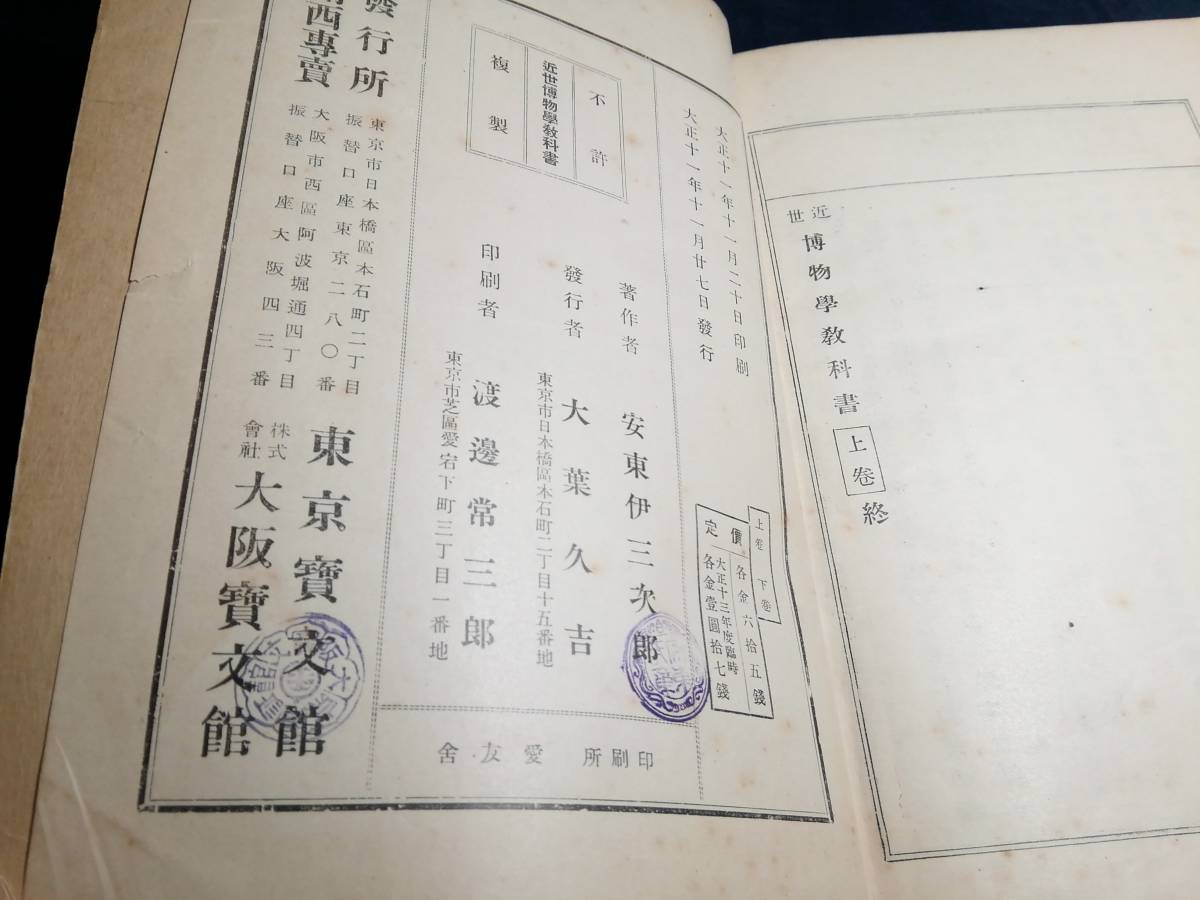 近世博物學教科書 上卷 終
大正十一年十一月二十日印刷
大正十一年十一月廿七日發行
上卷 下卷
定價 各金六拾五錢
大正十三年度臨時
各金壹圓拾七錢
不許
近世博物學教科書
複製
著作者 安東伊三次郎
發行者 大葉久吉
東京市日本橋區本石町二丁目十五番地
印刷者 渡邊常三郎
東京市芝區愛宕下町三丁目一番地
印刷所 愛友舍
發行所
東京市日本橋區本石町二丁目
振替口座東京二八〇番
東京寶文館
西專賣
大阪市西區阿波堀通四丁目
振替口座大阪四三番
株式會社 大阪寶文館